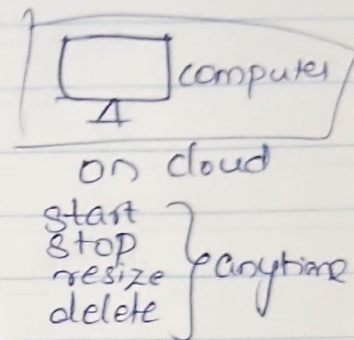 computer
on cloud
start
stop
resize
delete
anytime